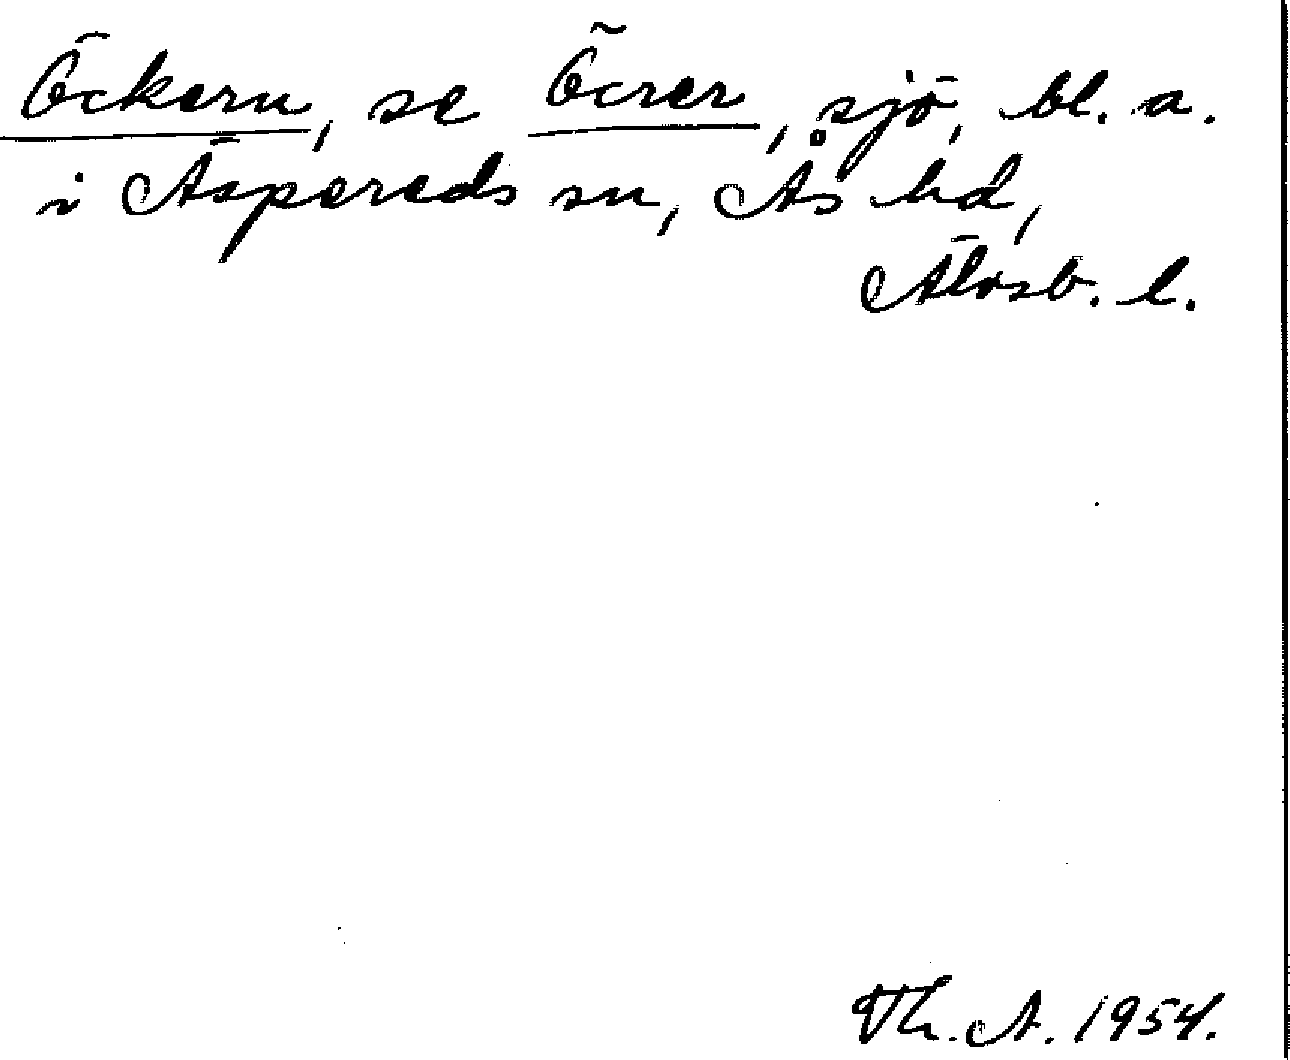 Öckern, se Öcrer, sjö, bl. a.
i Äspereds sn, Ås hd,
Älvsb. l.
Th. A. 1954.